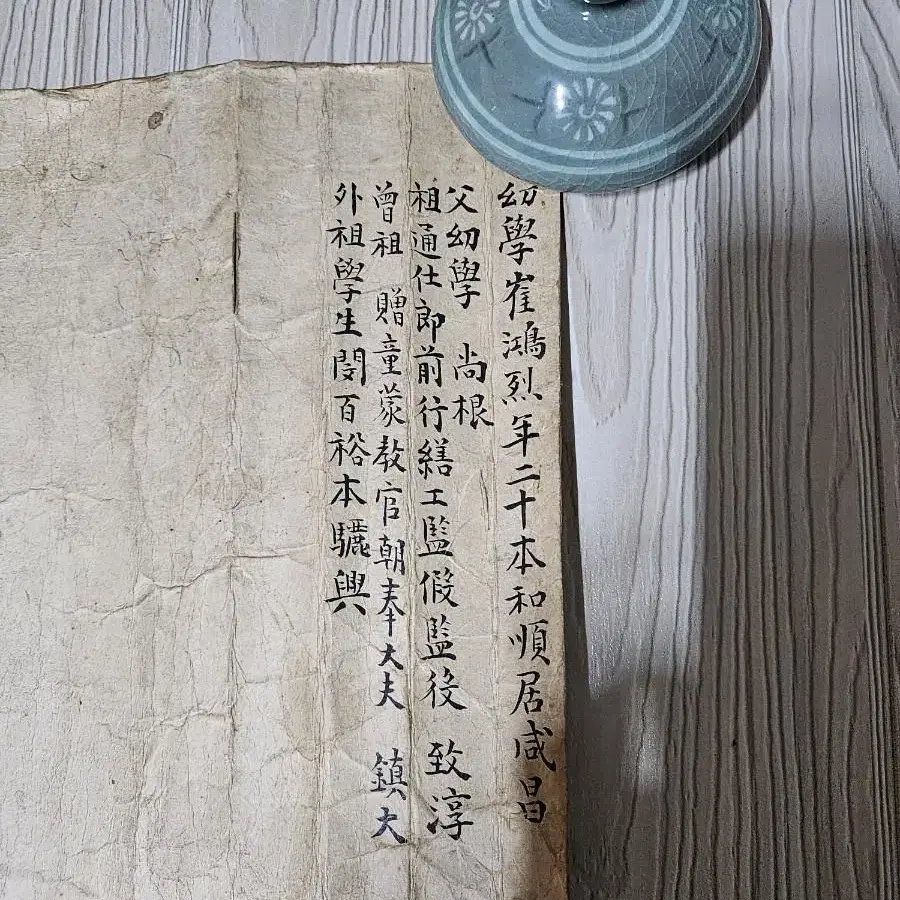 幼學崔鴻烈年二十本和順居咸昌
父幼學 尚根
祖通仕郎前行繕工監假監役 致淳
曾祖 贈童蒙教官朝奉大夫 鎮大
外祖學生閔百裕本驪興